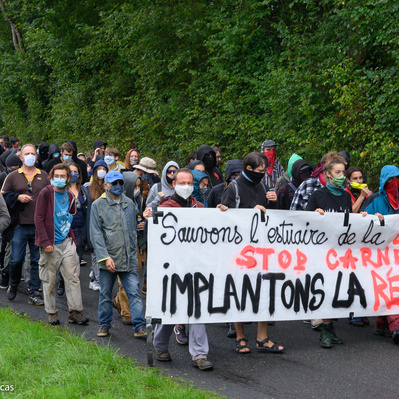 Sauvons l'estuaire de la
STOP CARNE
IMPLANTONS LA RÉ
cas